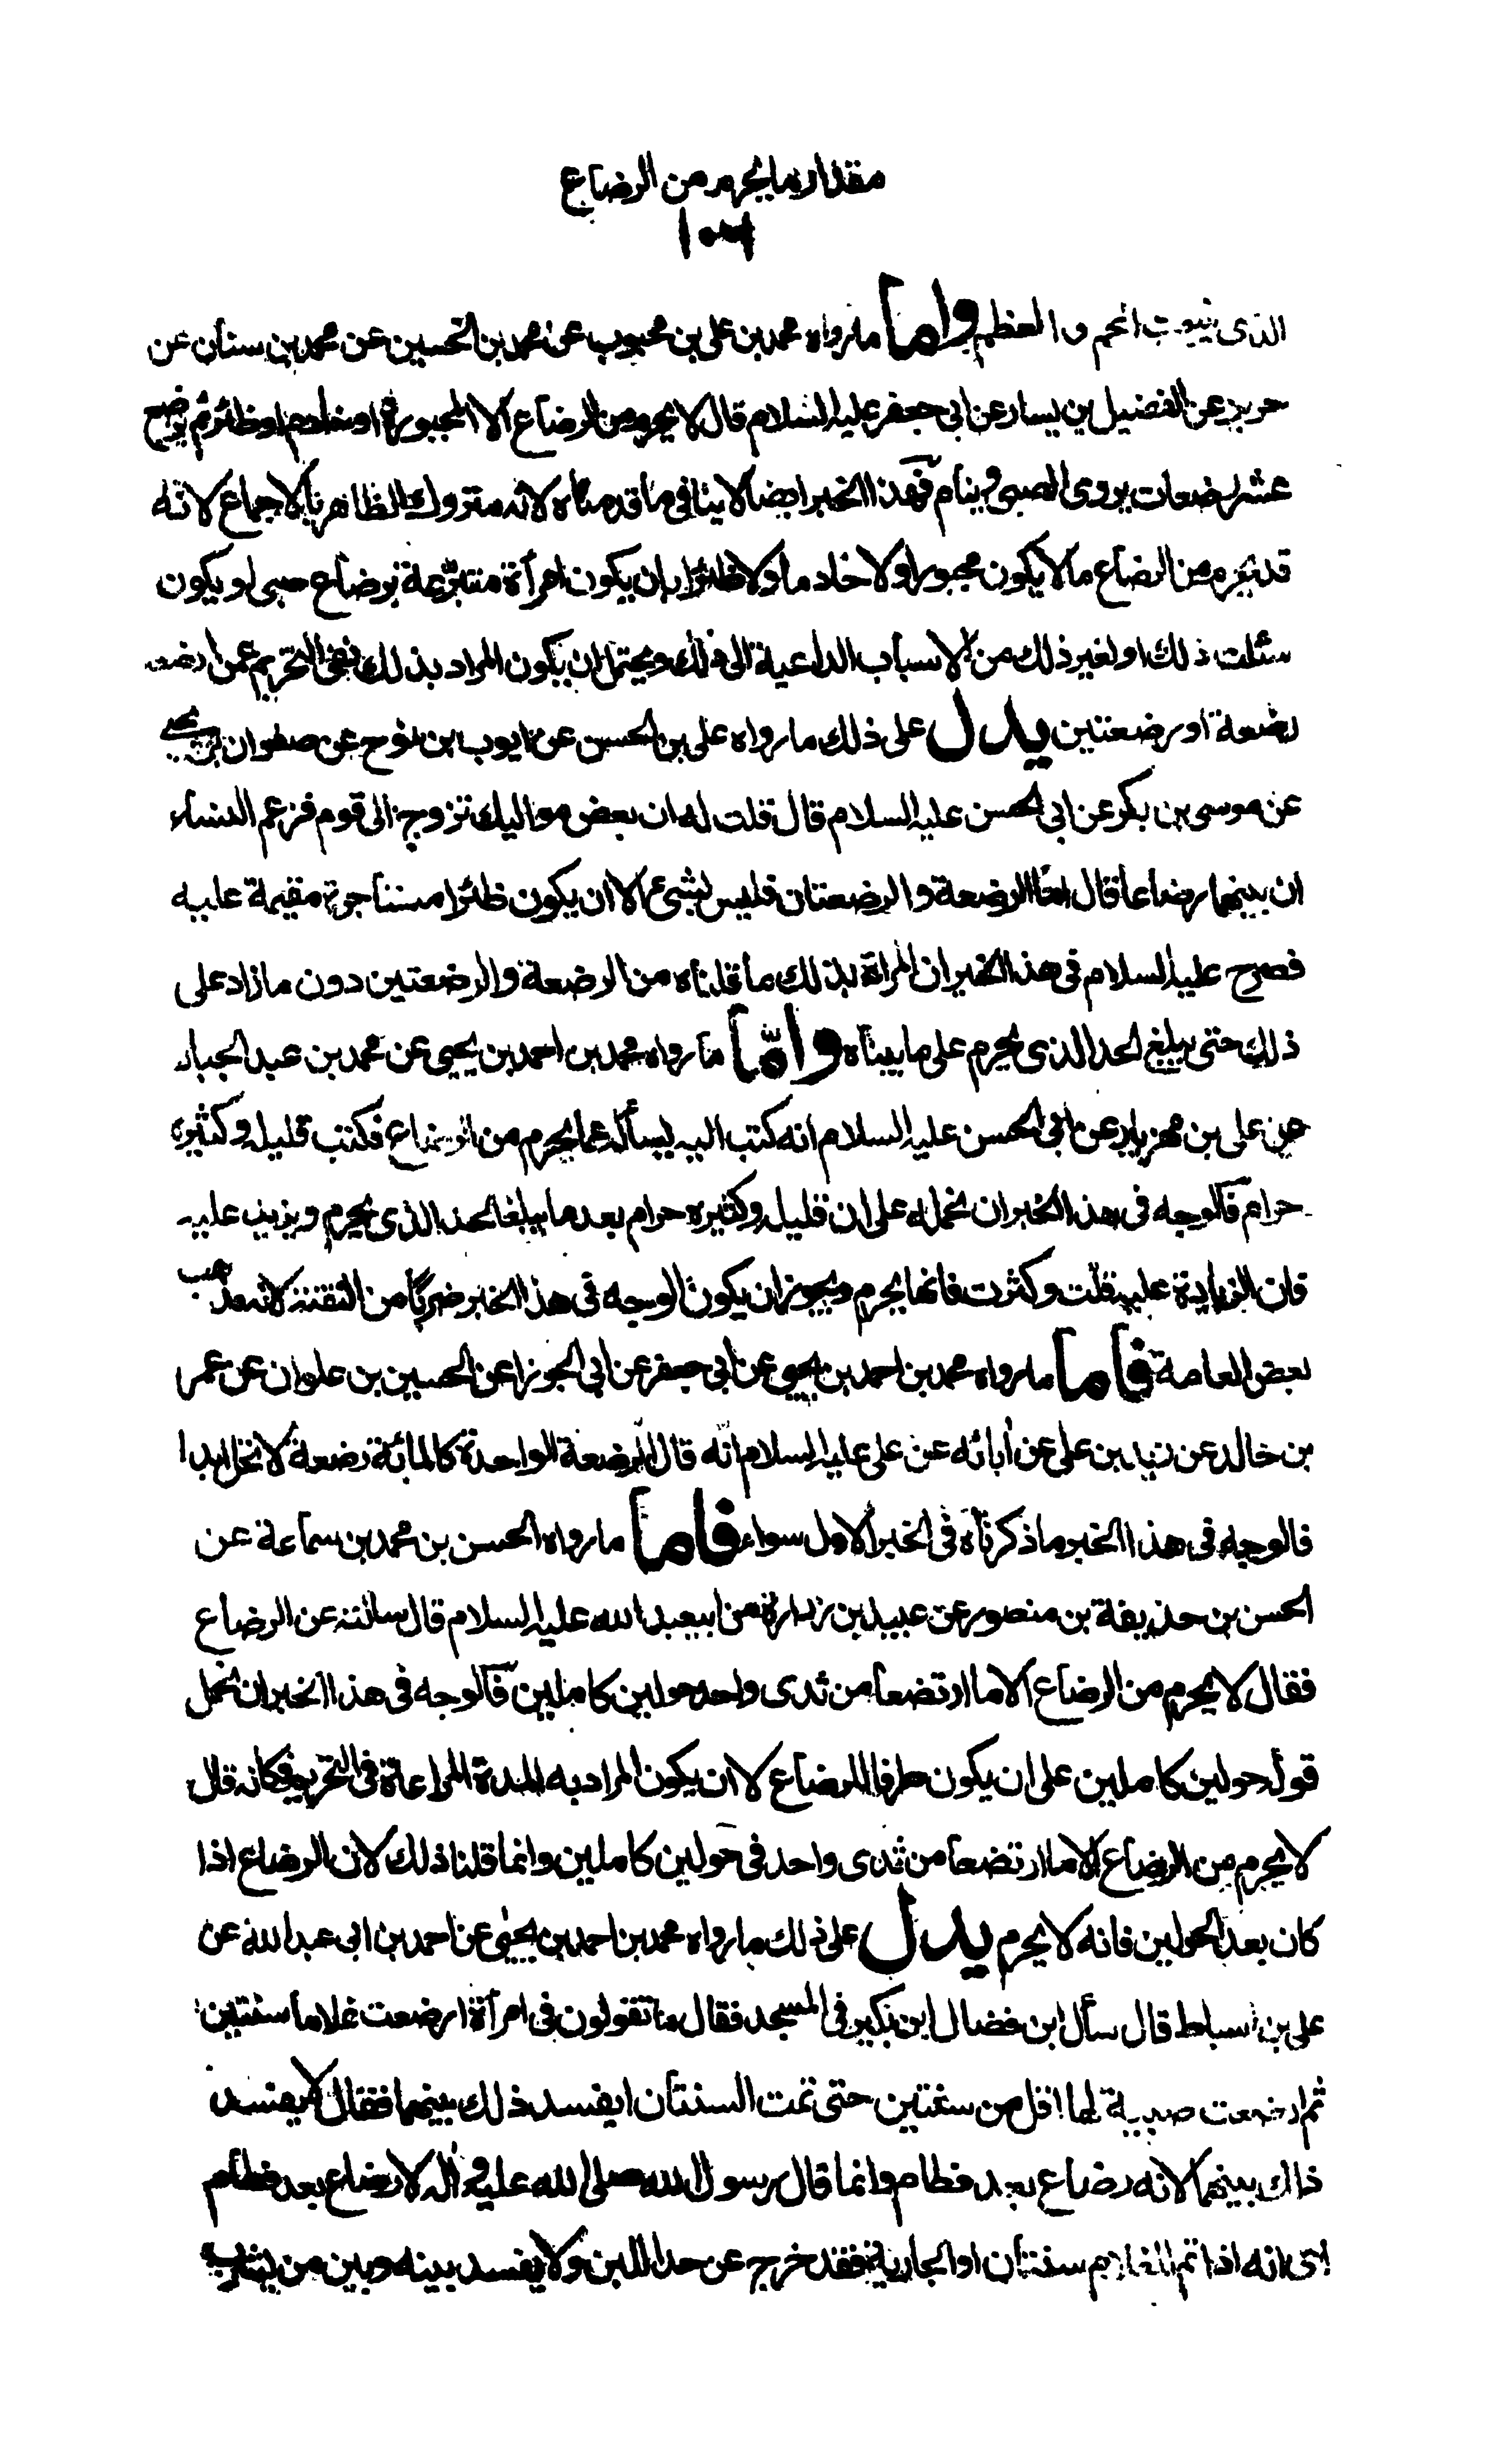 مقدار ما يحرم من الرضاع
الذى ينبت اللحم و العظم واما ما رواه محمد بن على بن محبوب عن محمد بن الحسين عن محمد بن سنان عن
حريز عن الفضيل بن يسار عن ابى جعفر عليه السلام قال لا يحرم من الرضاع الا المجبورة او خادم او ظئر ثم يرضع
عشر رضعات يروى الصبى و ينام فهذا الخبر ايضا لا ينافى ما قدمناه لانه متروك الظاهر بالاجماع لانه
قد يحرم من الرضاع ما لا يكون مجبورا ولا خادما ولا ظئرا بان يكون امرأة متبرّعة برضاع صبى او يكون
سئلت ذلك او لغير ذلك من الاسباب الداعية الى ذلك ويحتمل ان يكون المراد بذلك نفى التحريم عمن ارضعت
رضعة او رضعتين يدل على ذلك ما رواه على بن الحسن عن ايوب ابن نوح عن صفوان بن يحيى
عن موسى بن بكر عن ابى الحسن عليه السلام قال قلت له ان بعض مواليك تزوج الى قوم فزعم النساء
ان بينهما رضاعا قال امّا الرضعة و الرضعتان فليس بشىء الا ان يكون ظئرا مستأجرة مقيمة عليه
فصرح عليه السلام فى هذا الخبر ان المراة بذلك ما قلناه من الرضعة والرضعتين دون ما زاد على
ذلك حتى يبلغ الحد الذى يحرم على ما بيناه وامّا ما رواه محمد بن احمد بن يحيى عن محمد بن عبد الجبار
عن على بن مهزيار عن ابى الحسن عليه السلام انه كتب اليه يسأله عما يحرم من الرضاع فكتب قليله وكثيره
حرام فالوجه فى هذا الخبر ان نحمله على ان قليله وكثيره حرام بعد ما يبلغ الحد الذى يحرم ويزيد عليه
فان الزيادة عليه قلّت وكثرت فانها يحرم ويجوز ان يكون الوجه فى هذا الخبر ضربًا من التقية لانه مذهب
بعض العامة فاما ما رواه محمد بن احمد بن يحيى عن ابى جعفر عن ابى الجوزا عن الحسين بن علوان عن عمر
بن خالد عن زيد بن على عن آبائه عن على عليه السلام انّه قال الرضعة الواحدة كالمائة رضعة لا تحل ابدا
فالوجه فى هذا الخبر ما ذكرناه فى الخبر الاول سواء فاما ما رواه الحسن بن محمد بن سماعة عن
الحسن بن حذيفة بن منصور عن عبيد بن زرارة عن ابيعبد الله عليه السلام قال سالته عن الرضاع
فقال لا يحرم من الرضاع الا ما ارتضعا من ثدى واحد حولين كاملين فالوجه فى هذا الخبر ان نحمل
قوله حولين كاملين على ان يكون ظرفا للرضاع لا ان يكون المراد به المدة المراعاة فى التحريم فكانه قال
لا يحرم من الرضاع الا ما ارتضعا من ثدى واحد فى حولين كاملين وانما قلنا ذلك لان الرضاع اذا
كان بعد الحولين فانه لا يحرم يدل على ذلك ما رواه محمد بن احمد بن يحيى عن احمد بن ابى عبد الله عن
على بن اسباط قال سأل ابن فضال ابن بكير فى المسجد فقال ما تقولون فى امرأة ارضعت غلاما سنتين
ثم ارضعت صبية لها اقل من سنتين حتى تمت السنتان ايفسد ذلك بينهما فقال لا يفسد
ذلك بينهما لانه رضاع بعد فطام وانما قال رسول الله صلى الله عليه و آله لا رضاع بعد فطام
اى انه اذا تم للغلام سنتان او الجارية فقد خرج عن حد اللبن ولا يفسد بينه وبين من يشرب